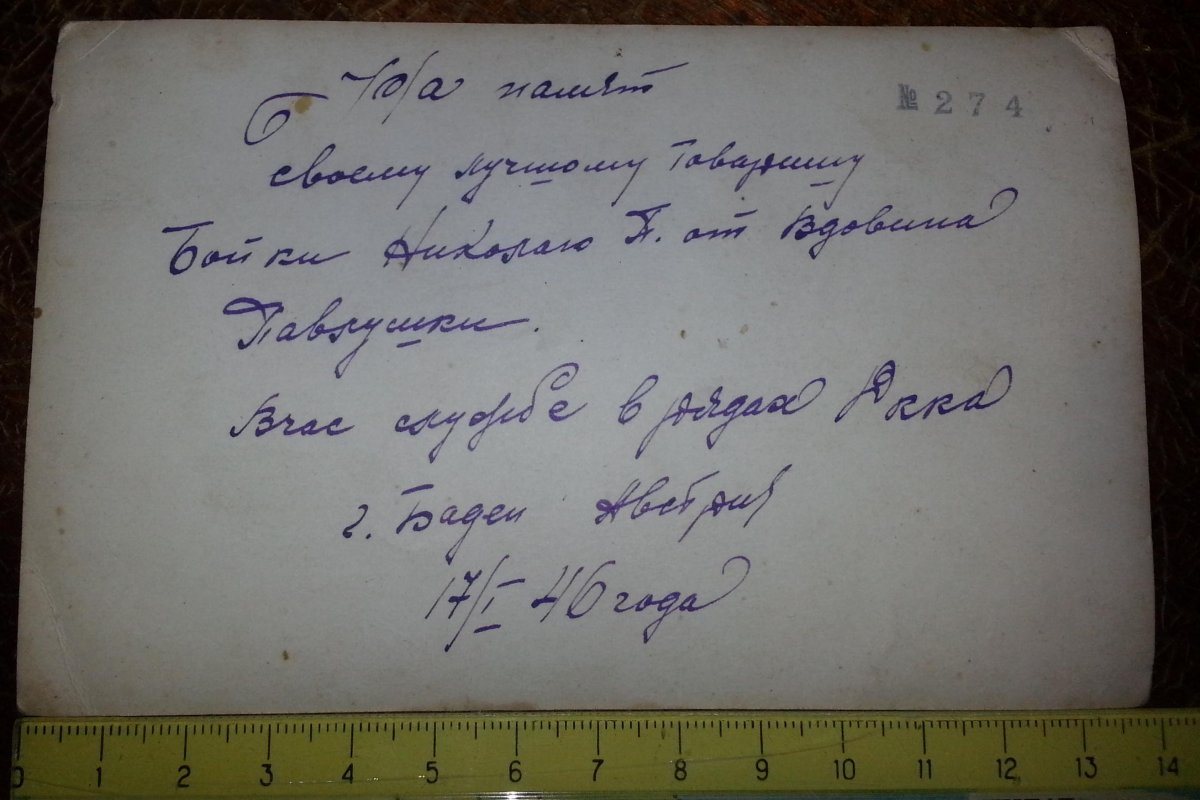 На памят
№ 274
своему лучшому товарищу
Бойки Николаю П. от Вдовина
Павлушки.
Вчас службе в рядах Ркка
г. Баден Австрия
17/I 46 года
0 1 2 3 4 5 6 7 8 9 10 11 12 13 14